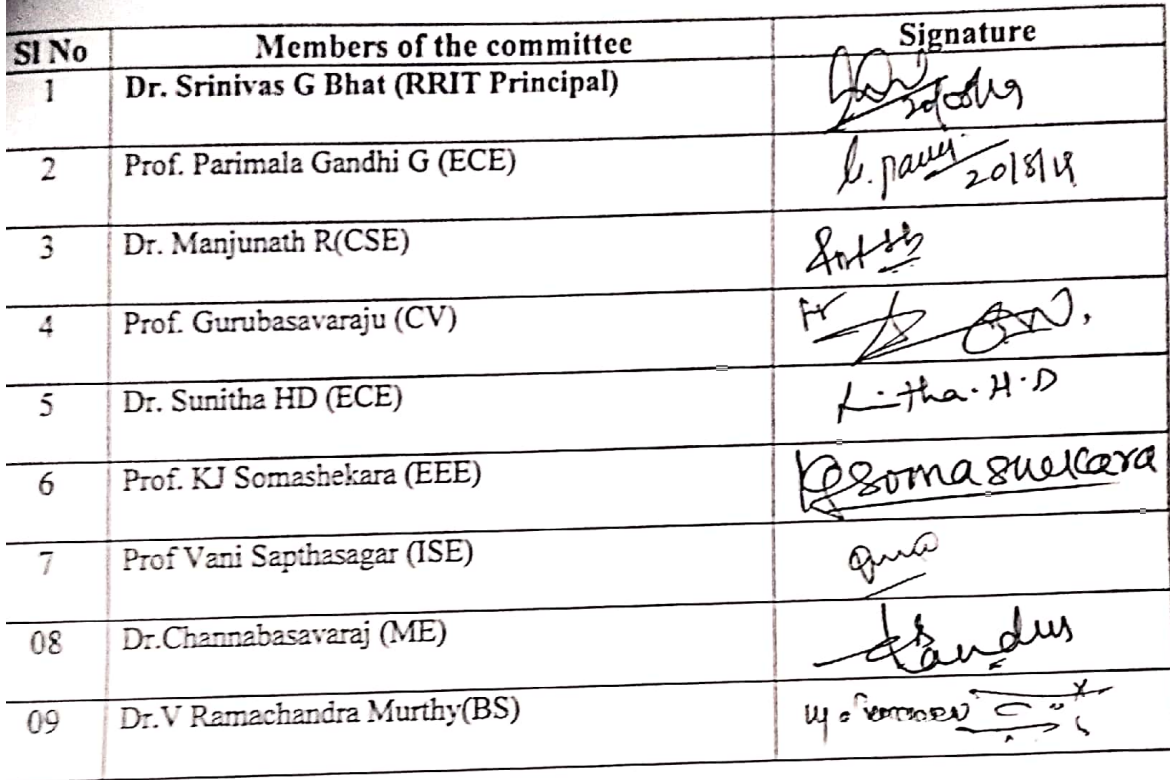 Sl No Members of the committee Signature
1 Dr. Srinivas G Bhat (RRIT Principal)
2 Prof. Parimala Gandhi G (ECE) 20/8/19
3 Dr. Manjunath R(CSE)
4 Prof. Gurubasavaraju (CV) Fr
5 Dr. Sunitha HD (ECE) H.D
6 Prof. KJ Somashekara (EEE) Somashekara
7 Prof Vani Sapthasagar (ISE)
08 Dr.Channabasavaraj (ME)
09 Dr.V Ramachandra Murthy(BS)